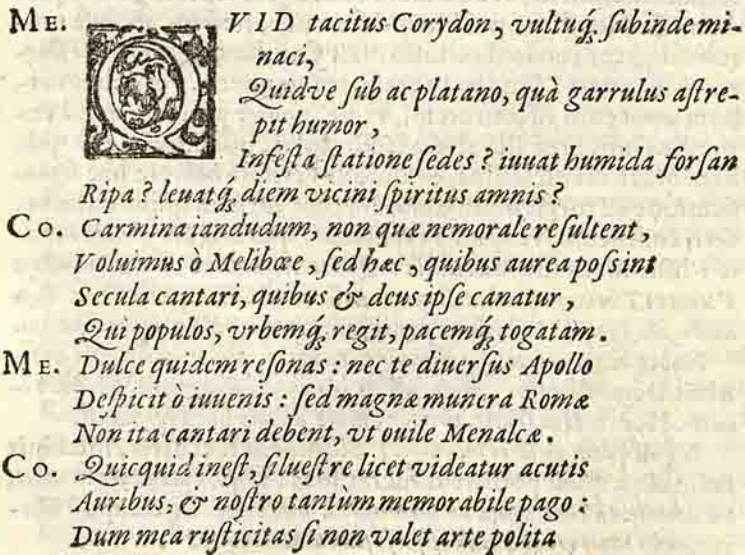 ME. QVID tacitus Corydon, vultuq́ꝫ ſubinde mi-
naci,
Quidve ſub ac platano, quà garrulus aſtre-
pit humor,
Infeſta ſtatione ſedes? iuuat humida forſan
Ripa? leuatq́ꝫ diem vicini ſpiritus amnis?
Co. Carmina iandudum, non quæ nemorale reſultent,
Voluimus ò Melibœe, ſed hæc, quibus aurea poſsint
Secula cantari, quibus & deus ipſe canatur,
Qui populos, vrbemq́ꝫ regit, pacemq́ꝫ togatam.
ME. Dulce quidem reſonas: nec te diuerſus Apollo
Deſpicit ò iuuenis: ſed magnæ munera Romæ
Non ita cantari debent, vt ouile Menalcæ.
Co. Quicquid ineſt, ſilueſtre licet videatur acutis
Auribus, & noſtro tantùm memorabile pago:
Dum mea ruſticitas ſi non valet arte polita